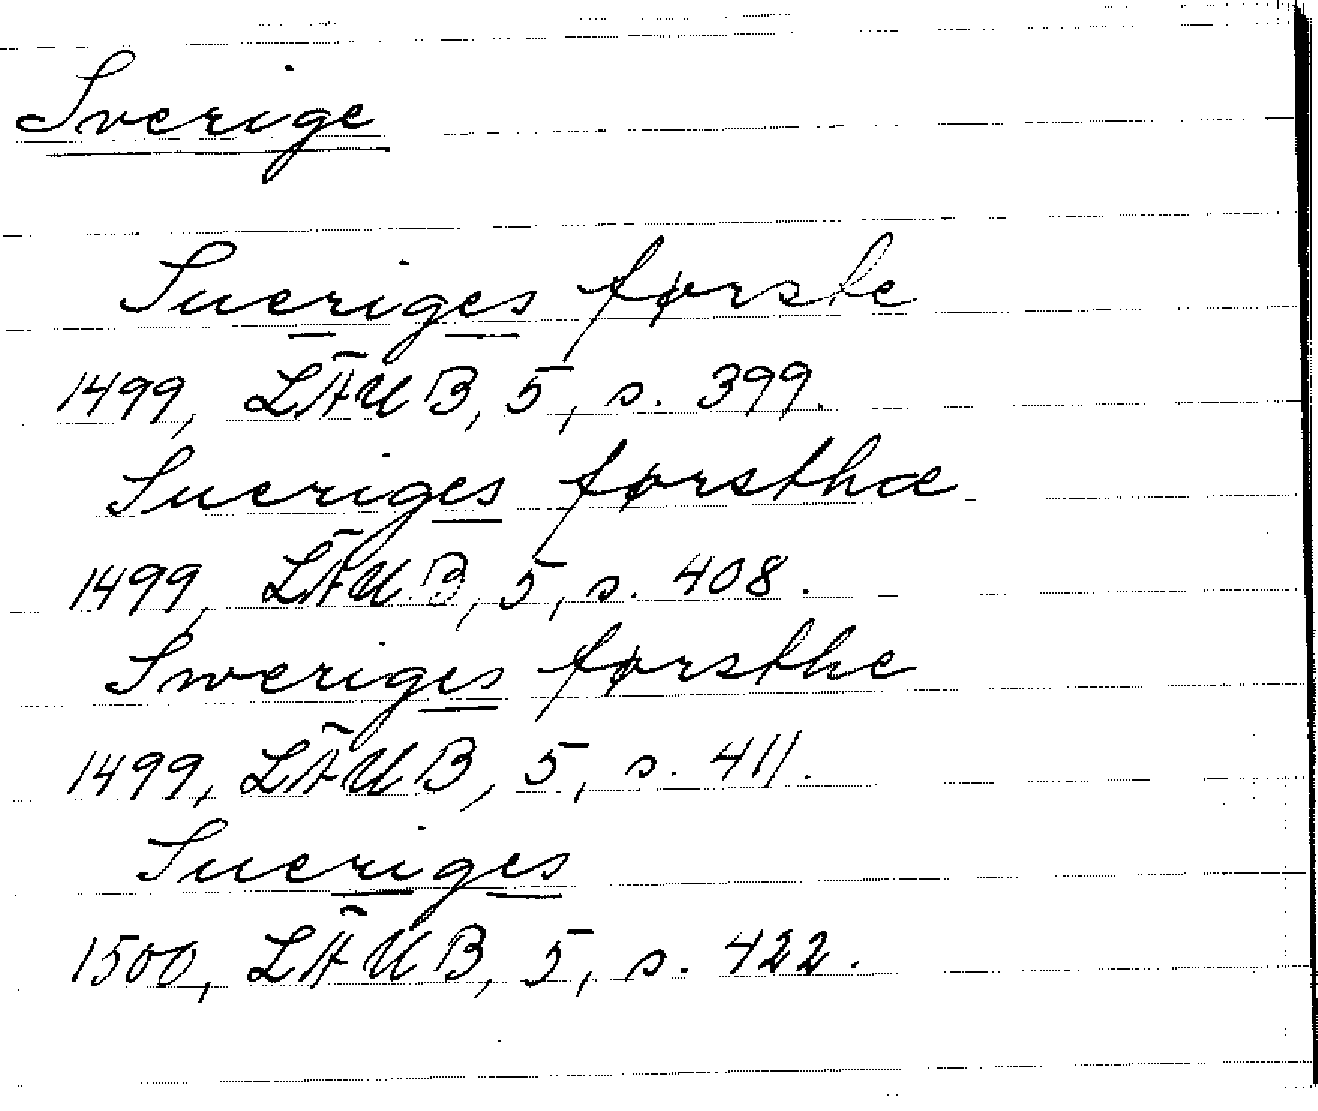 Sverige
Sueriges første
1499, LÄUB, 5, s. 399.
Sueriges førsthæ
1499, LÄUB, 5, s. 408.
Sweriges førsthe
1499, LÄUB, 5, s. 411.
Sueriges
1500, LÄUB, 5, s. 422.